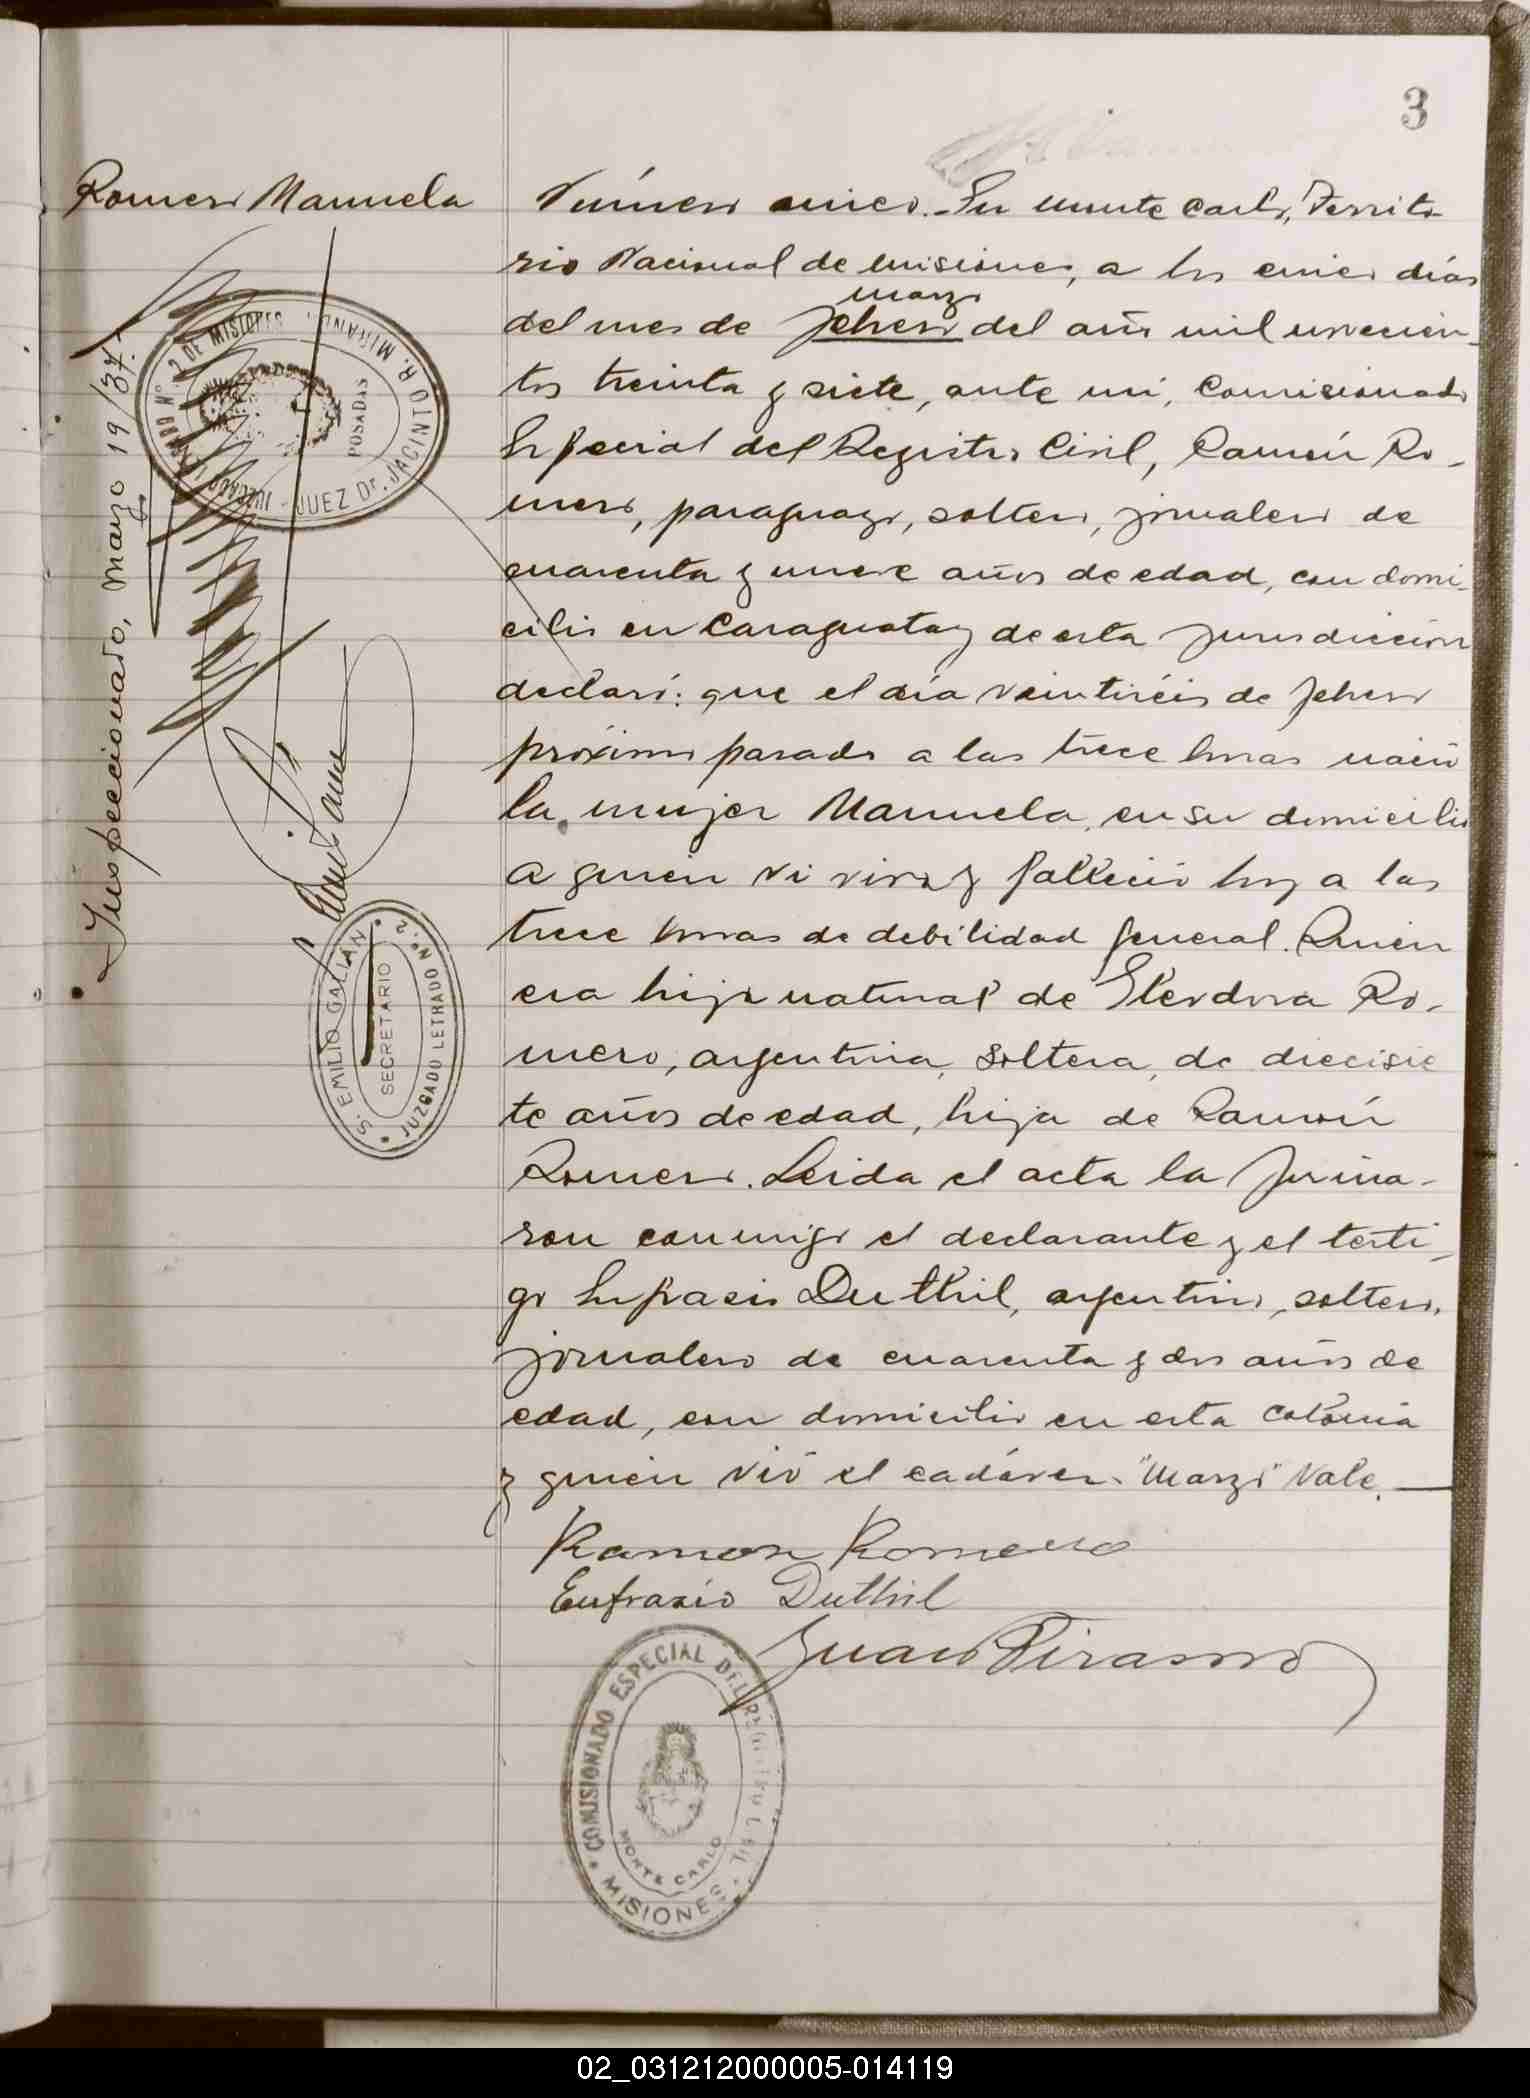 3
Romero Manuela
Inspeccionado, Marzo 19/37.-
JUZGADO LETRADO N.º 2 DE MISIONES
JUEZ Dr. JACINTO R. MIRANDA
POSADAS
S. EMILIO GALIAN
SECRETARIO
JUZGADO LETRADO Nº. 2
Número cinco.- En Monte Carlo, Territo-
rio Nacional de Misiones, a los cinco días
marzo
del mes de febrero del año mil novecien-
tos treinta y siete, ante mi, Comisionado
Especial del Registro Civil, Ramón Ro-
mero, paraguayo, soltero, jornalero de
cuarenta y nueve años de edad, con domi-
cilio en Caraguatay de esta jurisdicción
declaró: que el día veintiséis de febrero
próximo pasado a las trece horas nació
la mujer Manuela, en su domicilio
a quien vi viva y falleció hoy a las
trece horas de debilidad general. Quien
era hija natural de Eleodora Ro-
mero, argentina, soltera, de diecisie
te años de edad, hija de Ramón
Romero. Leida el acta la firma-
ron conmigo el declarante y el testi-
go Eufracio Duthil, argentino, soltero,
jornalero de cuarenta y dos años de
edad, con domicilio en esta colonia
y quien vió el cadáver.- "Marzo" Vale.
Ramon Romero
Eufrasio Duthil
Juan Pirasso
COMISIONADO ESPECIAL DEL REGISTRO CIVIL
MONTE CARLO
MISIONES
02_031212000005-014119